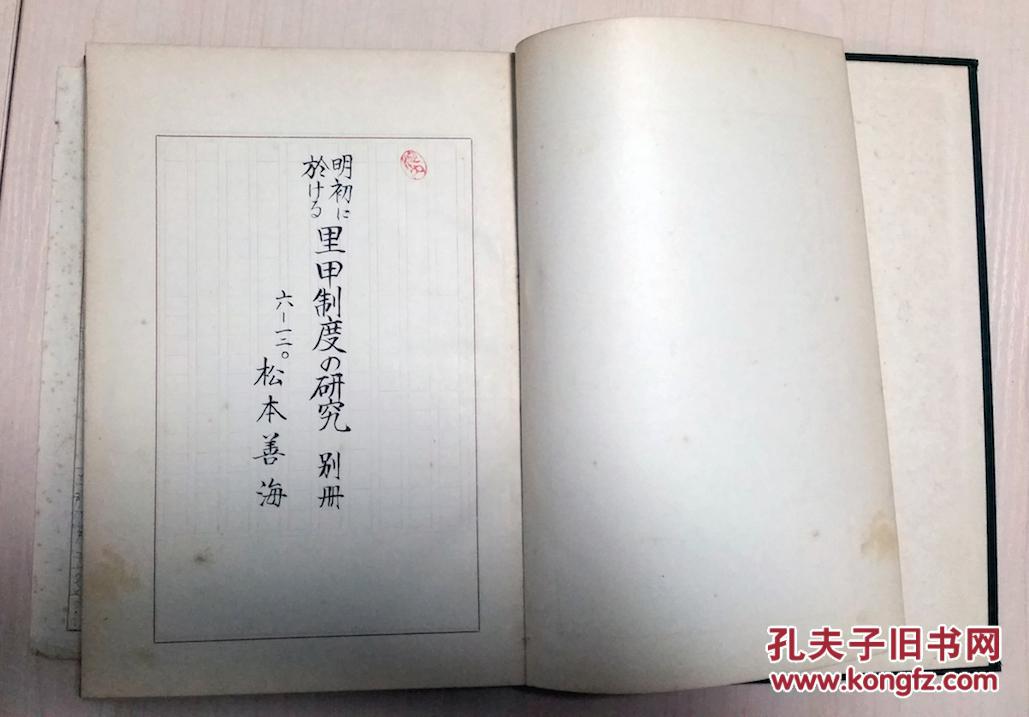 明初に
於ける
里甲制度の研究 別冊
六ー一二。
松本善海
孔夫子旧书网
www.kongfz.com